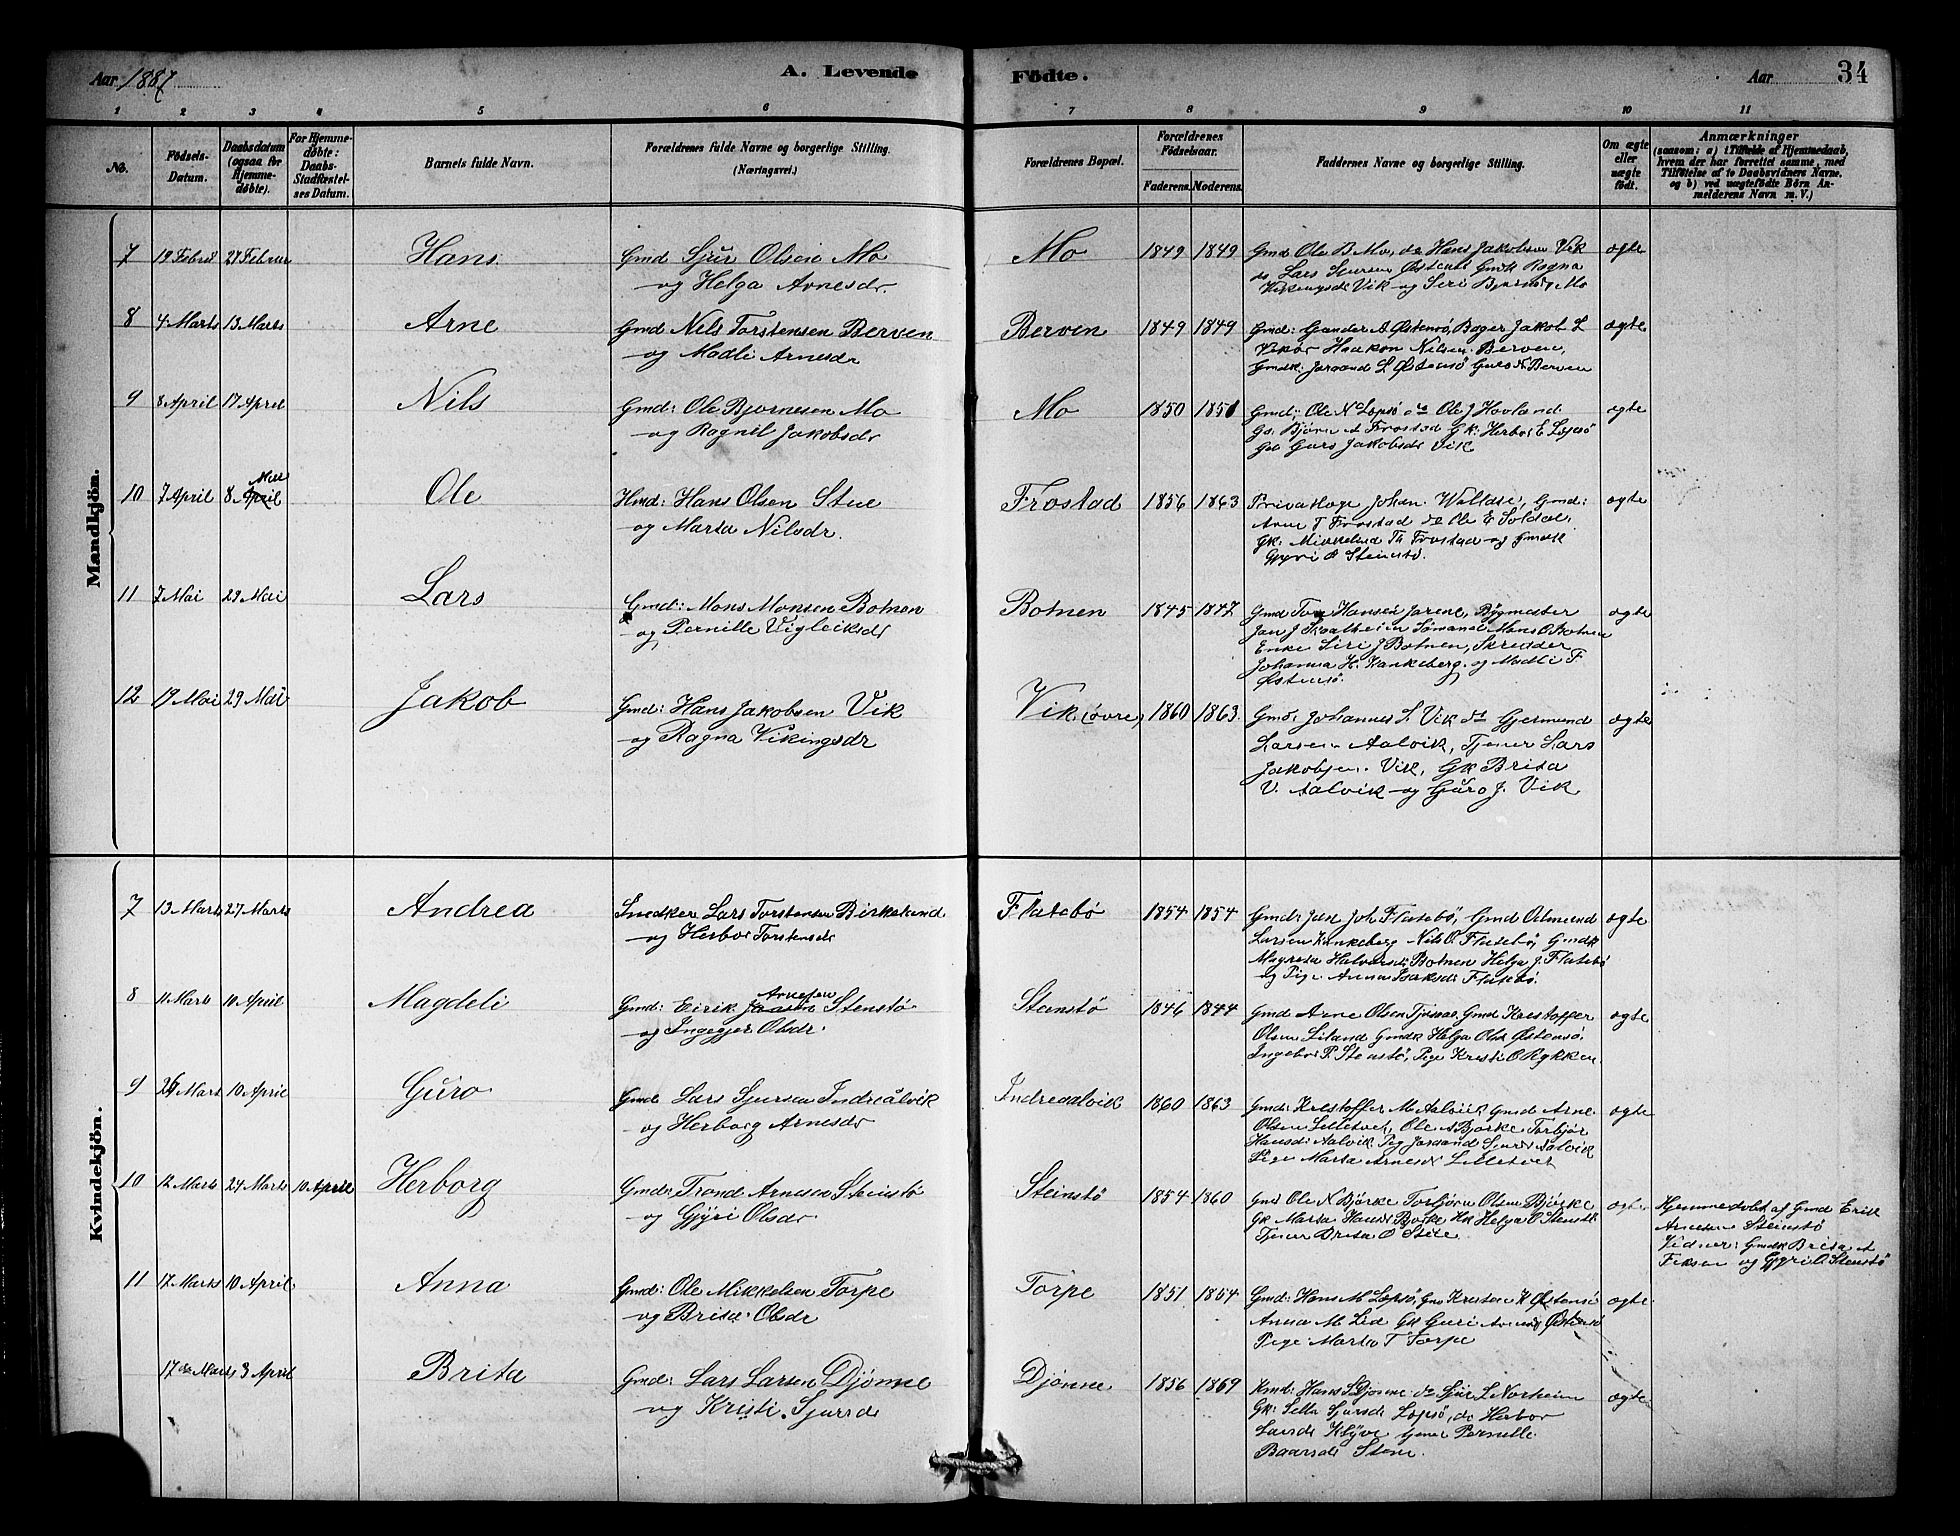 Aar 1887
A. Levende
Födte.
Aar
34
1 2 3 4 5 6 7 8 9 10 11
No.
Födsels-
Datum.
Daabsdatum
(ogsaa for
Hjemme-
döbte).
For Hjemme-
döbte:
Daabs-
Stadfæstel-
ses Datum.
Barnets fulde Navn.
Forældrenes fulde Navne og borgerlige Stilling.
(Næringsvei.)
Forældrenes Bopæl.
Forældrenes
Födselsaar.
Faderens. Moderens.
Faddernes Navne og borgerlige Stilling.
Om ægte
eller
uægte
födt.
Anmærkninger
(saasom: a) i Tilfælde af Hjemmedaab,
hvem der har forrettet samme, med
Tilföielse af to Daabsvidners Navne.
og b) ved uægtefödte Börn An-
melderens Navn m. V.)
Mandkjön.
7 19 Febr 27 Februar Hans Gmd Sjur Olsen Mo
og Helga Arnesdr.
Mo 1849 1849 Gmd Ole B. Mo, do Hans Jakobsen Vik
do Lars Gmdk Ragna
Vikingsdr Vik og Siri Mo
ægte
8 4 Marts 13 Marts Arne Gmd Nils Torstensen Berven
og Madli Arnesdr
Berven 1849 1849 Gmd: Gunder A Østensö, Bager Jakob L
Vikör Haakon Nilsen Berven,
Gmdk: Joraand L Østensö Guro N Berven
ægte
9 8 April 17 April Nils Gmd: Ole Bjornesen Mo
og Ragnil Jakobsdr
Mo 1850 1851 Gmd: Ole N Lepsö do Ole J Hovland
Gd. Björn A Frostad Gk: Herbor E Lepsö
Gd Guro Jakobsdr Vik
ægte
10 7 April 8 Mai Ole Hmd: Hans Olsen Stue
og Marta Nilsdr.
Frostad 1856 1863 Johan Gmd:
Arne T Frostad do Ole E Soldal,
Gk: Th Frostad og Gmdk
Gyri A Steinstö.
ægte
11 7 Mai 29 Mai Lars Gmd: Mons Monsen Botnen
og Pernille Vigleiksdr
Botnen 1845 1847 Gmd Hansen Bygmester
Jan J Sömand Mons O Botnen
Enke Siri J Botnen, Skrædder
Johanna H. Kankeberg og Madli F
Østensö.
ægte
12 19 Mai 29 Mai Jakob Gmd: Hans Jakobsen Vik
og Ragna Vikingsdr
Vik (övre) 1860 1863. Gmd. Johannes S. Vik do Gjermund
Larsen Aalvik, Tjener Lars
Jakobsen Vik, Gk Brita
V. Aalvik og Guro J. Vik
ægte
Kvindekjön.
7 13 Marts 27 Marts Andrea Snedker Lars Torstensen Birkeland
og Herbor Torstensdr
Flatebö 1854 1854 Gmd: Jan Joh Flatebö, Gmd Odmund
Larsen Kankeberg Nils O Flatebö, Gmdk
Magreta Halvorsdr Botnen Helga J. Flatebö
og Pige Anna Isaksdr Flatebö.
ægte
8 11 Marts 10 April Magdeli Gmd: Eirik Arnesen Stenstö
og Ingegjer Olsdr.
Steinstö 1846 1844 Gmd Arne Olsen Gmd Kristoffer
Olsen Liland Gmdk Helga Olsd Østensö,
Ingebor P. Steinstö, Pige Kristi O Rykken
ægte
9 26 Marts 10 April Guro Gmd Lars Sjursen Indreålvik
og Herborg Arnesdr
Indreaalvik 1860 1863 Gmd: Kristoffer M Aalvik Gmd Arne
Olsen Lilletvet, Ole A Bjørke Torbjör
Hansdr Aalvik Pig Joraand Sjursd Aalvik
Pige Marta Arnesdr Lilletvet
ægte
10 12 Marts 24 Marts 10 April Herborg Gmd: Trond Arnesen Steinstö
og Gjyri Olsdr.
Steinstö 1854 1860 Gmd Ole N Bjørke Torbjörn Olsen Bjørke
Gk Marta Hansd Bjørke Hk Helga O Steinstö
Tjener Brita O
ægte
Hjemmedöbt af Gmd Erik
Arnesen Steinstö
Vidner: Gmdk Brita A
Fiksen og Gyri O Stenstö
11 17 Marts 10 April Anna Gmd: Ole Mikkelsen Torpe
og Brita Olsdr
Torpe 1851 1854 Gmd: Hans M Lepsö, Gmd Kristen K Østensö
Anna M Lid Gk Guri Østensö
Pige Marta T Torpe
ægte
17 de Marts 3 April Brita Gmd: Lars Larsen Djönne
og Kristi Sjursd
Djönne 1856 1869 Kmd: Hans S Djönne do Sjur L Norheim
Gk: Sella Sjursdr Lepsö, do Herbor
Larsdr Klyve Pernille
Baarsdr Stene.
ægte